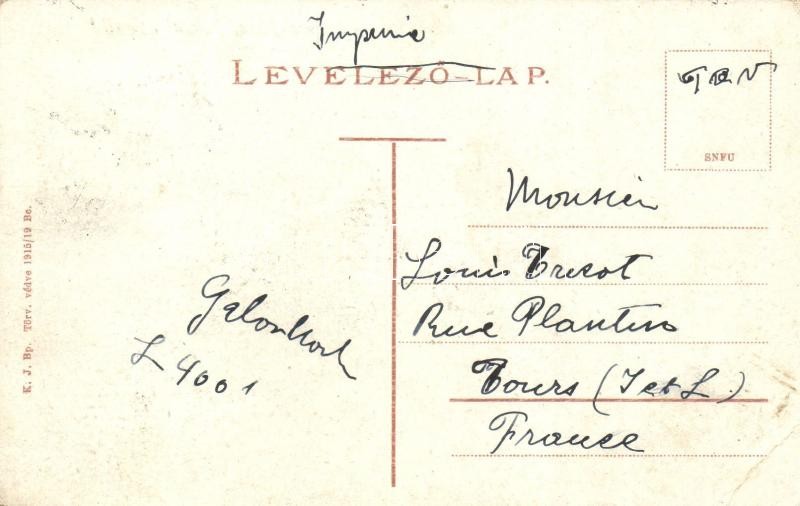 Imprimé
LEVELEZŐ-LAP.
TCV
SNFU
Monsieur
Louis Trezot
Rue Plantin
Tours (I et L)
France
L 4001
K. J. Bp. Törv. védve 1915/19 Be.